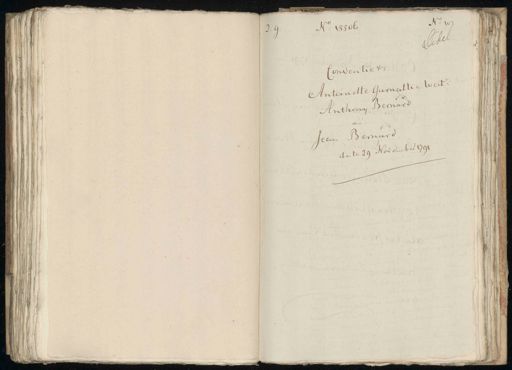 29 No 18506 No
Conventie
Antoinette Garnatte Wed.
Anthony Bernard
en
Jean Bernard
de do 29 November 1791